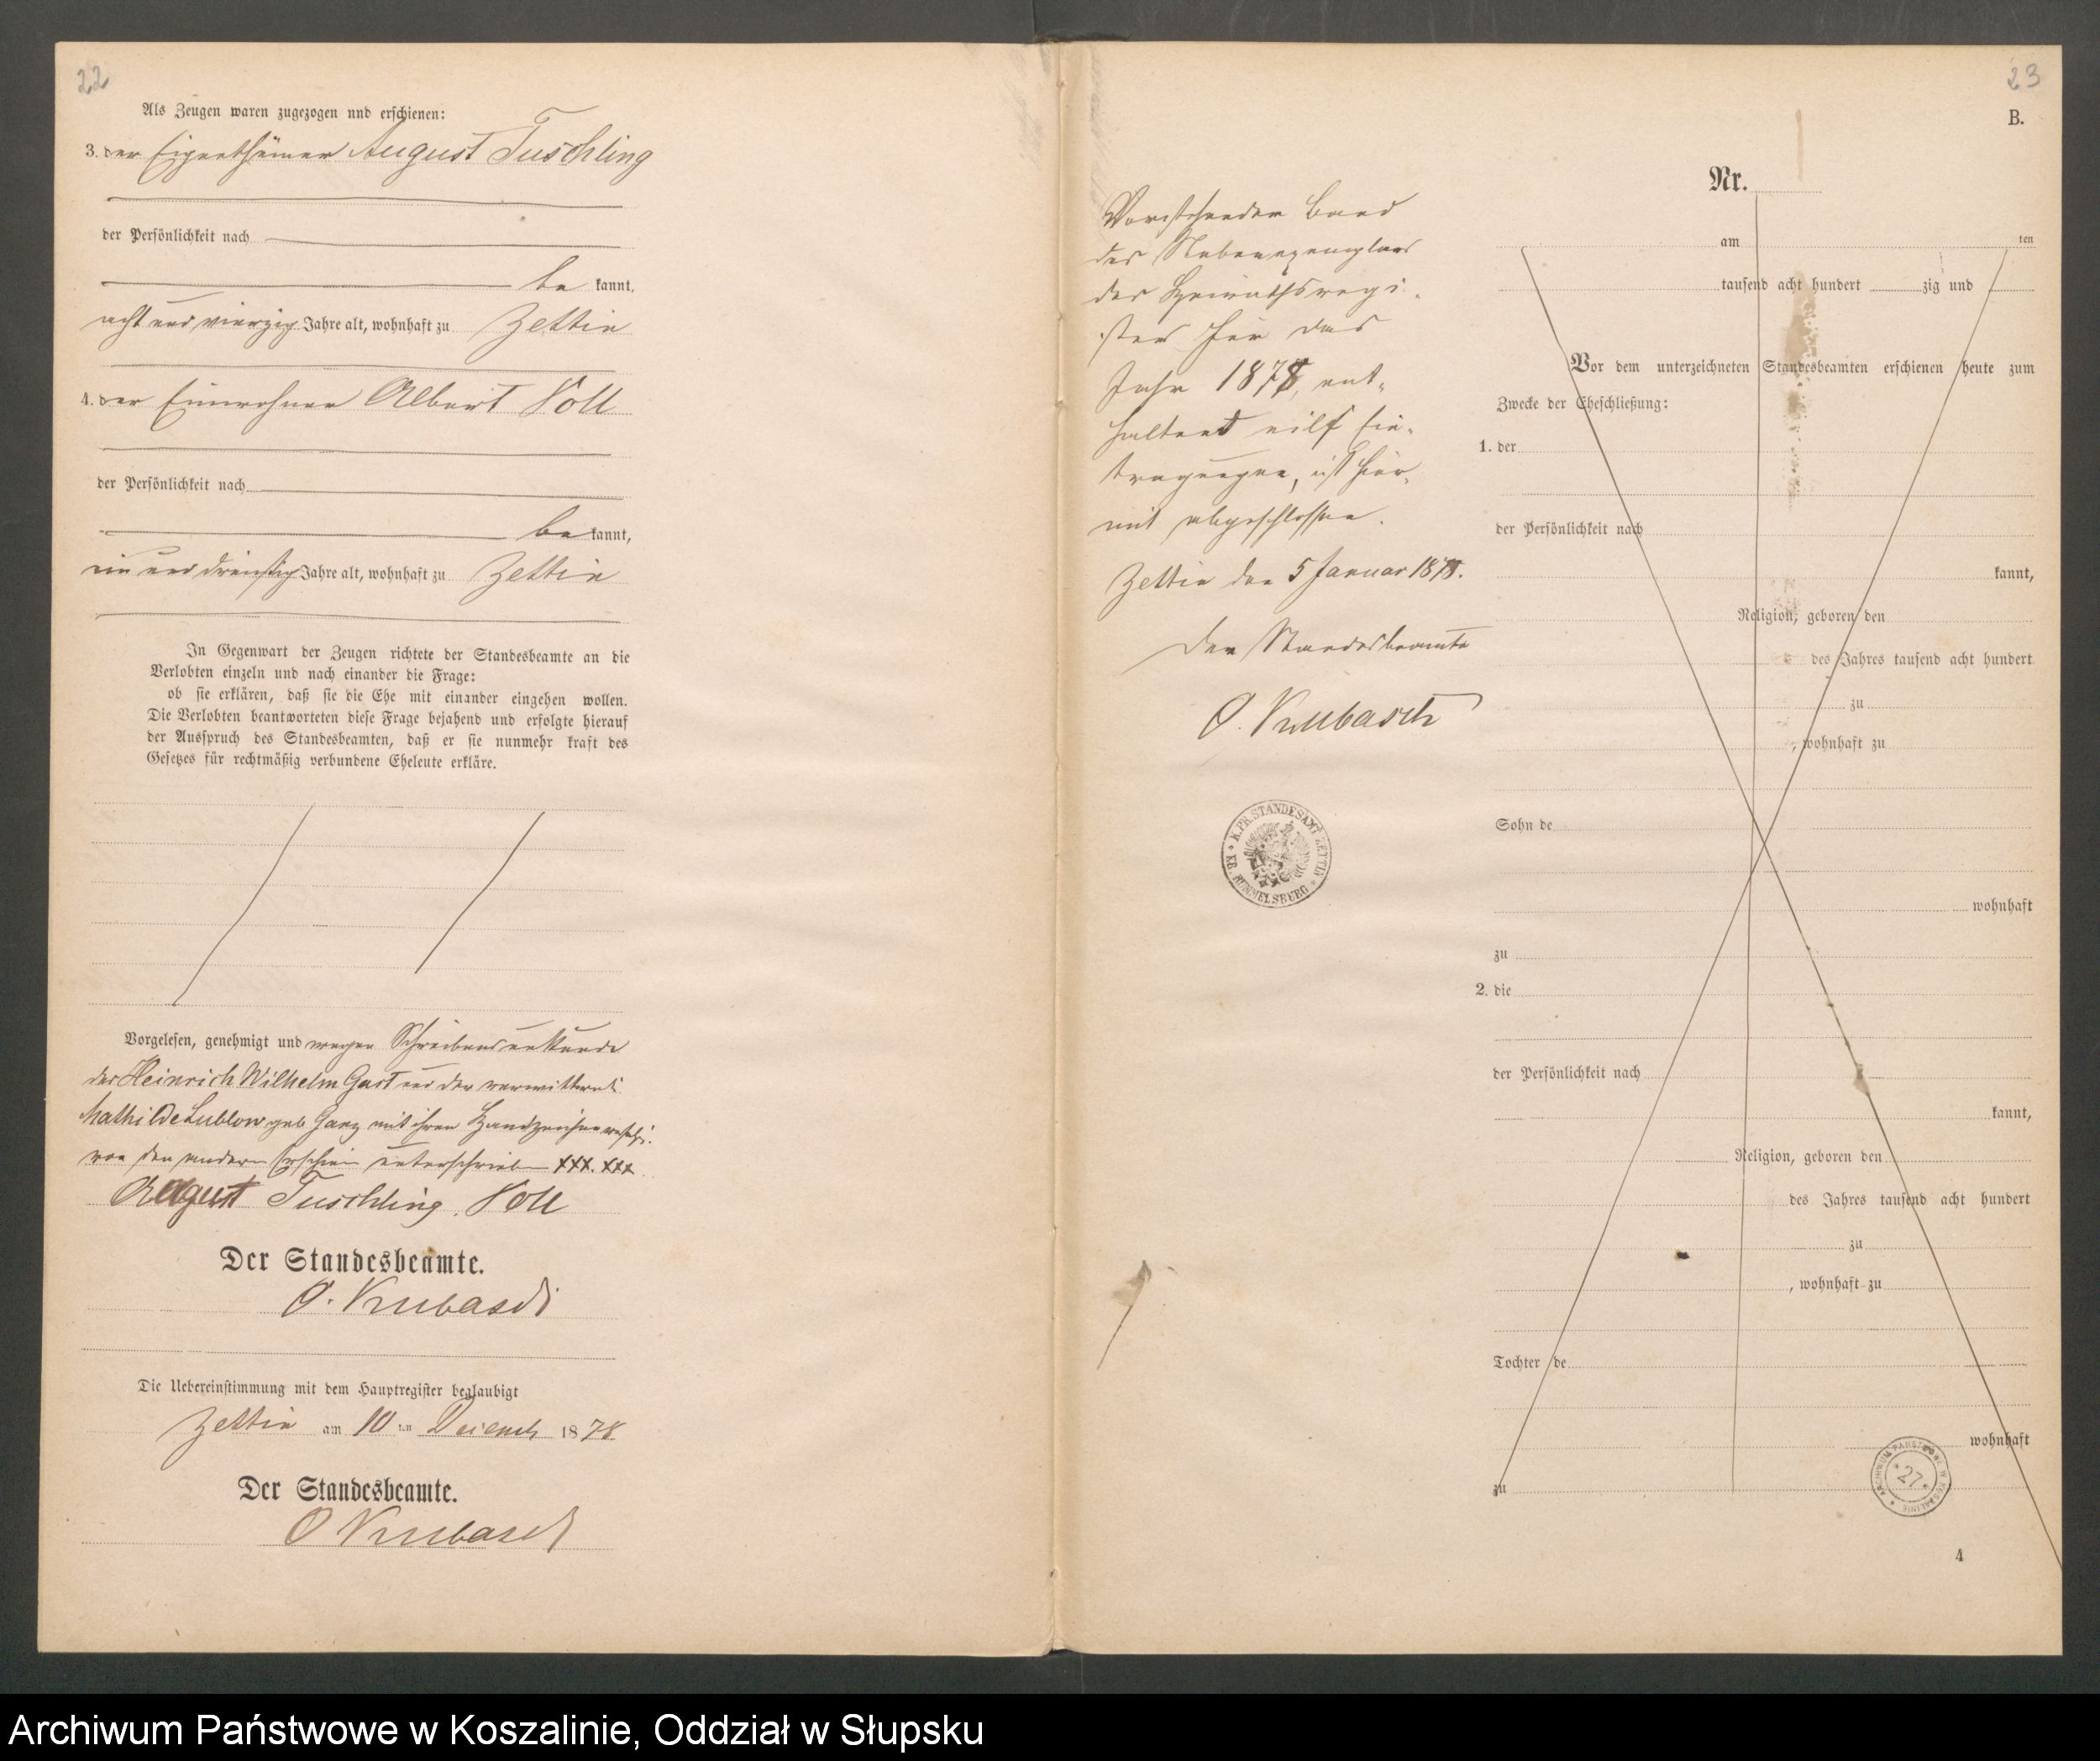 22
Als Zeugen waren zugezogen und erschienen:
3. der Eigenthümer August Tuschling
der Persönlichkeit nach
be kannt,
acht und vierzig Jahre alt, wohnhaft zu Zettin
4. der Einwohner Albert Noll
der Persönlichkeit nach
be kannt,
ein und dreißig Jahre alt, wohnhaft zu Zettin
In Gegenwart der Zeugen richtete der Standesbeamte an die
Verlobten einzeln und nach einander die Frage:
ob sie erklären, daß sie die Ehe mit einander eingehen wollen.
Die Verlobten beantworteten diese Frage bejahend und erfolgte hierauf
der Ausspruch des Standesbeamten, daß er sie nunmehr kraft des
Gesetzes für rechtmäßig verbundene Eheleute erkläre.
Vorgelesen, genehmigt und wegen Schreibensunkunde
des Heinrich Wilhelm Gast und der verwittwete
Mathilde Lublow geb Ganz mit ihren Handzeichen
von den andern unterschrieben XXX. XXX
August Tuschling. Noll
Der Standesbeamte.
O. Krubasch
Die Uebereinstimmung mit dem Hauptregister beglaubigt
Zettin am 10 ten 1878
Der Standesbeamte.
O Krubasch
23
B.
Vorstehender Band
des Nebenexemplars
des Heirathsregi-
sters für das
Jahr 1878, ent-
haltend eilf Ein-
tragungen, ist hier-
mit abgeschlossen.
Zettin den 5 Januar
Der Standesbeamte
O. Krubasch
K. PR. STANDESAMT ZETTIN * KR. RUMMELSBURG *
Nr.
am ten
tausend acht hundert zig und
Vor dem unterzeichneten Standesbeamten erschienen heute zum
Zwecke der Eheschließung:
1. der
der Persönlichkeit nach
kannt,
Religion, geboren den
des Jahres tausend acht hundert
zu
, wohnhaft zu
Sohn de
wohnhaft
zu
2. die
der Persönlichkeit nach
kannt,
Religion, geboren den
des Jahres tausend acht hundert
zu
, wohnhaft zu
Tochter de
wohnhaft
zu
ARCHIWUM PAŃSTWOWE W KOSZALINIE * 27 *
4
Archiwum Państwowe w Koszalinie, Oddział w Słupsku